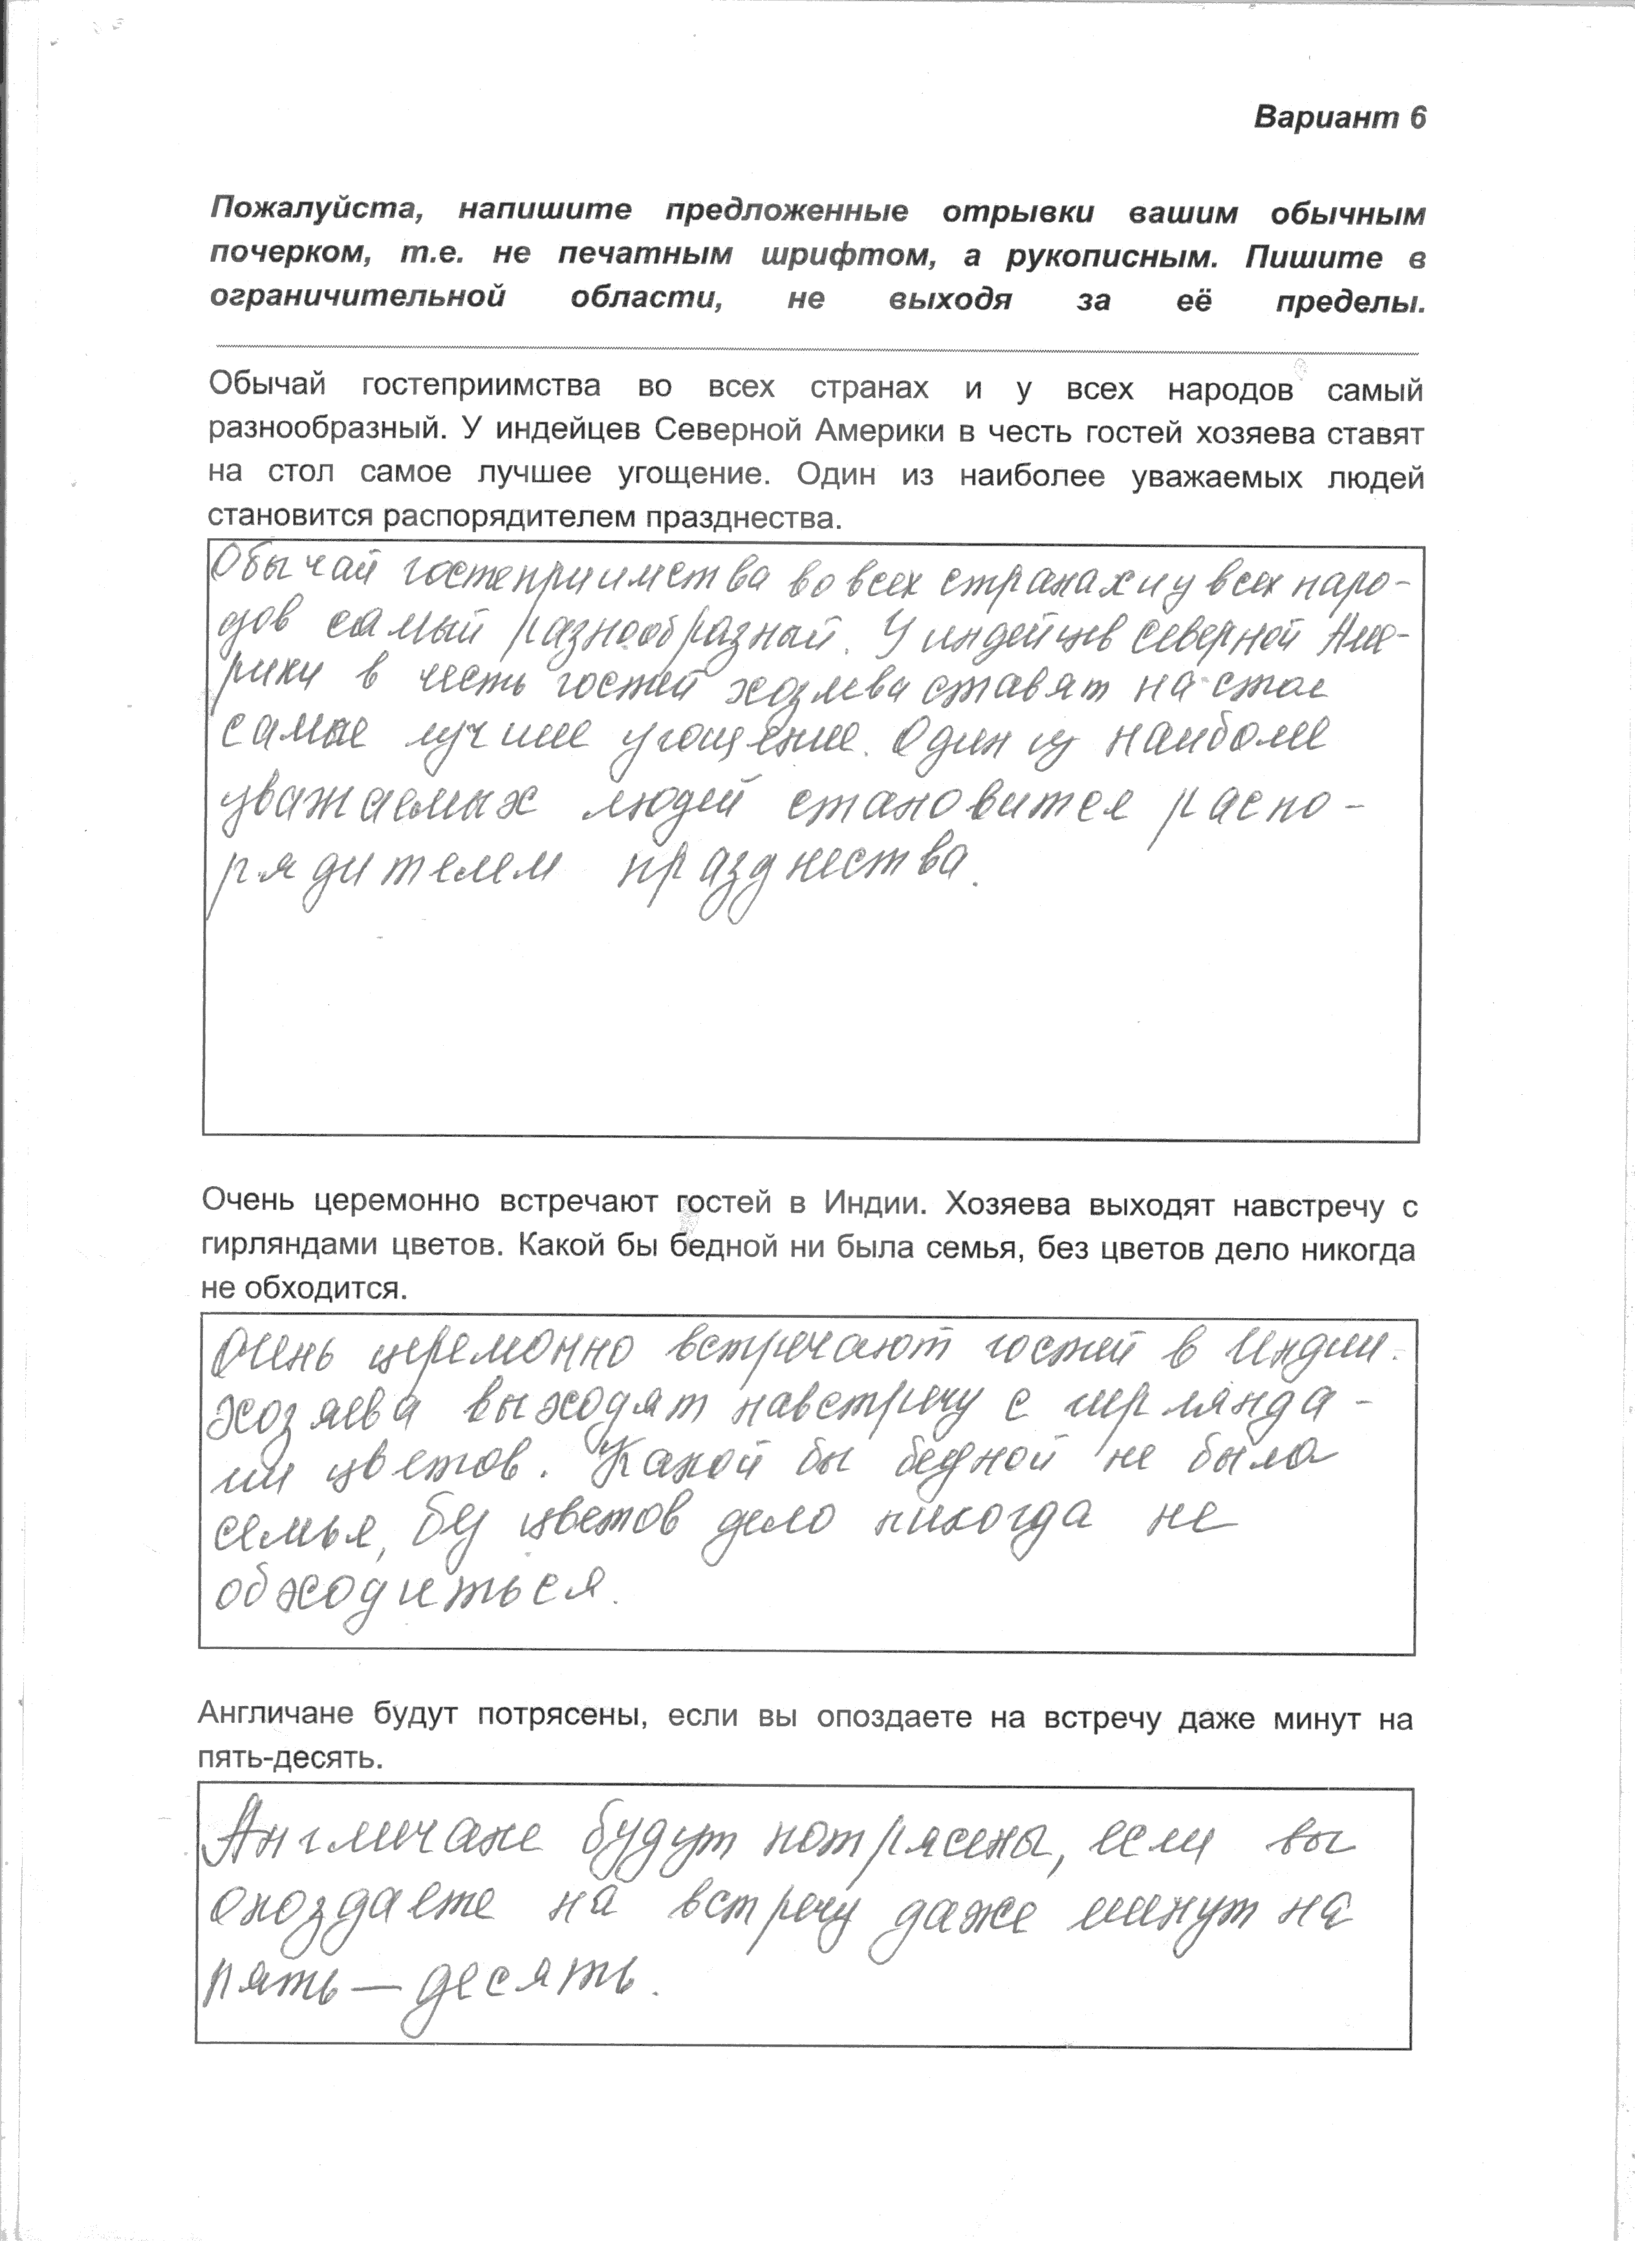 Вариант 6
Пожалуйста, напишите предложенные отрывки вашим обычным
почерком, т.е. не печатным шрифтом, а рукописным. Пишите в
ограничительной области, не выходя за её пределы.
Обычай гостеприимства во всех странах и у всех народов самый
разнообразный. У индейцев Северной Америки в честь гостей хозяева ставят
на стол самое лучшее угощение. Один из наиболее уважаемых людей
становится распорядителем празднества.
Обычай гостеприимства во всех странах и у всех наро-
дов самый разнообразный. У индейцев северной Аме-
рики в честь гостей хозяева ставят на стол
самое лучшее угощение. Один из наиболее
уважаемых людей становится распо-
рядителем празднества.
Очень церемонно встречают гостей в Индии. Хозяева выходят навстречу с
гирляндами цветов. Какой бы бедной ни была семья, без цветов дело никогда
не обходится.
Очень церемонно встречают гостей в Индии.
Хозяева выходят навстречу с гирлянда-
ми цветов. Какой бы бедной не была
семья, без цветов дело никогда не
обходиться.
Англичане будут потрясены, если вы опоздаете на встречу даже минут на
пять-десять.
Англичане будут потрясены, если вы
опоздаете на встречу даже минут на
пять — десять.